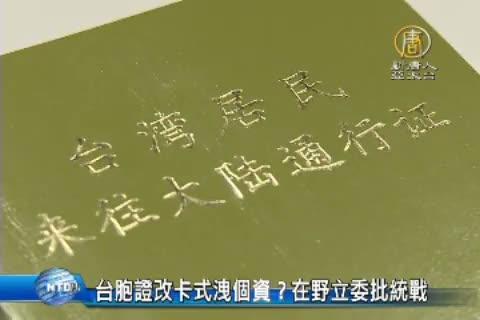 唐
新唐人
亞太台
台湾居民
来往大陆通行证
NTD
台胞證改卡式洩個資？在野立委批統戰